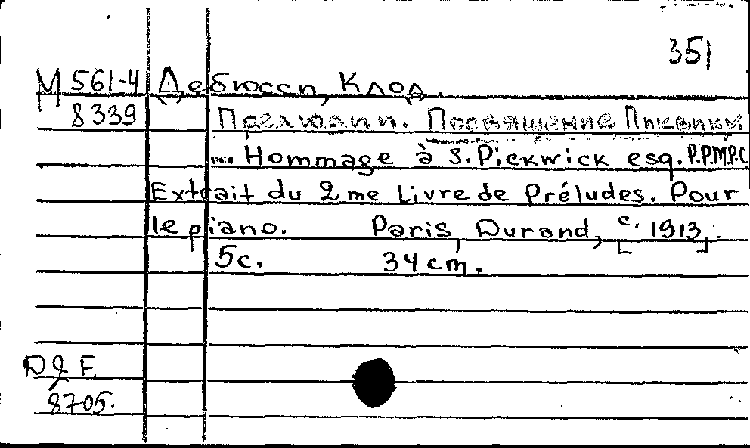 351
М 561-4 Дебюсси, Клод.
8339 Прелюдии. Посвящение Пиквику
... Hommage à S. Pickwick esq. P.P.M.P.C.
Extrait du 2me Livre de Préludes. Pour
le piano. Paris, Durand, [c. 1913].
5c. 34 cm.
D2F
8705.